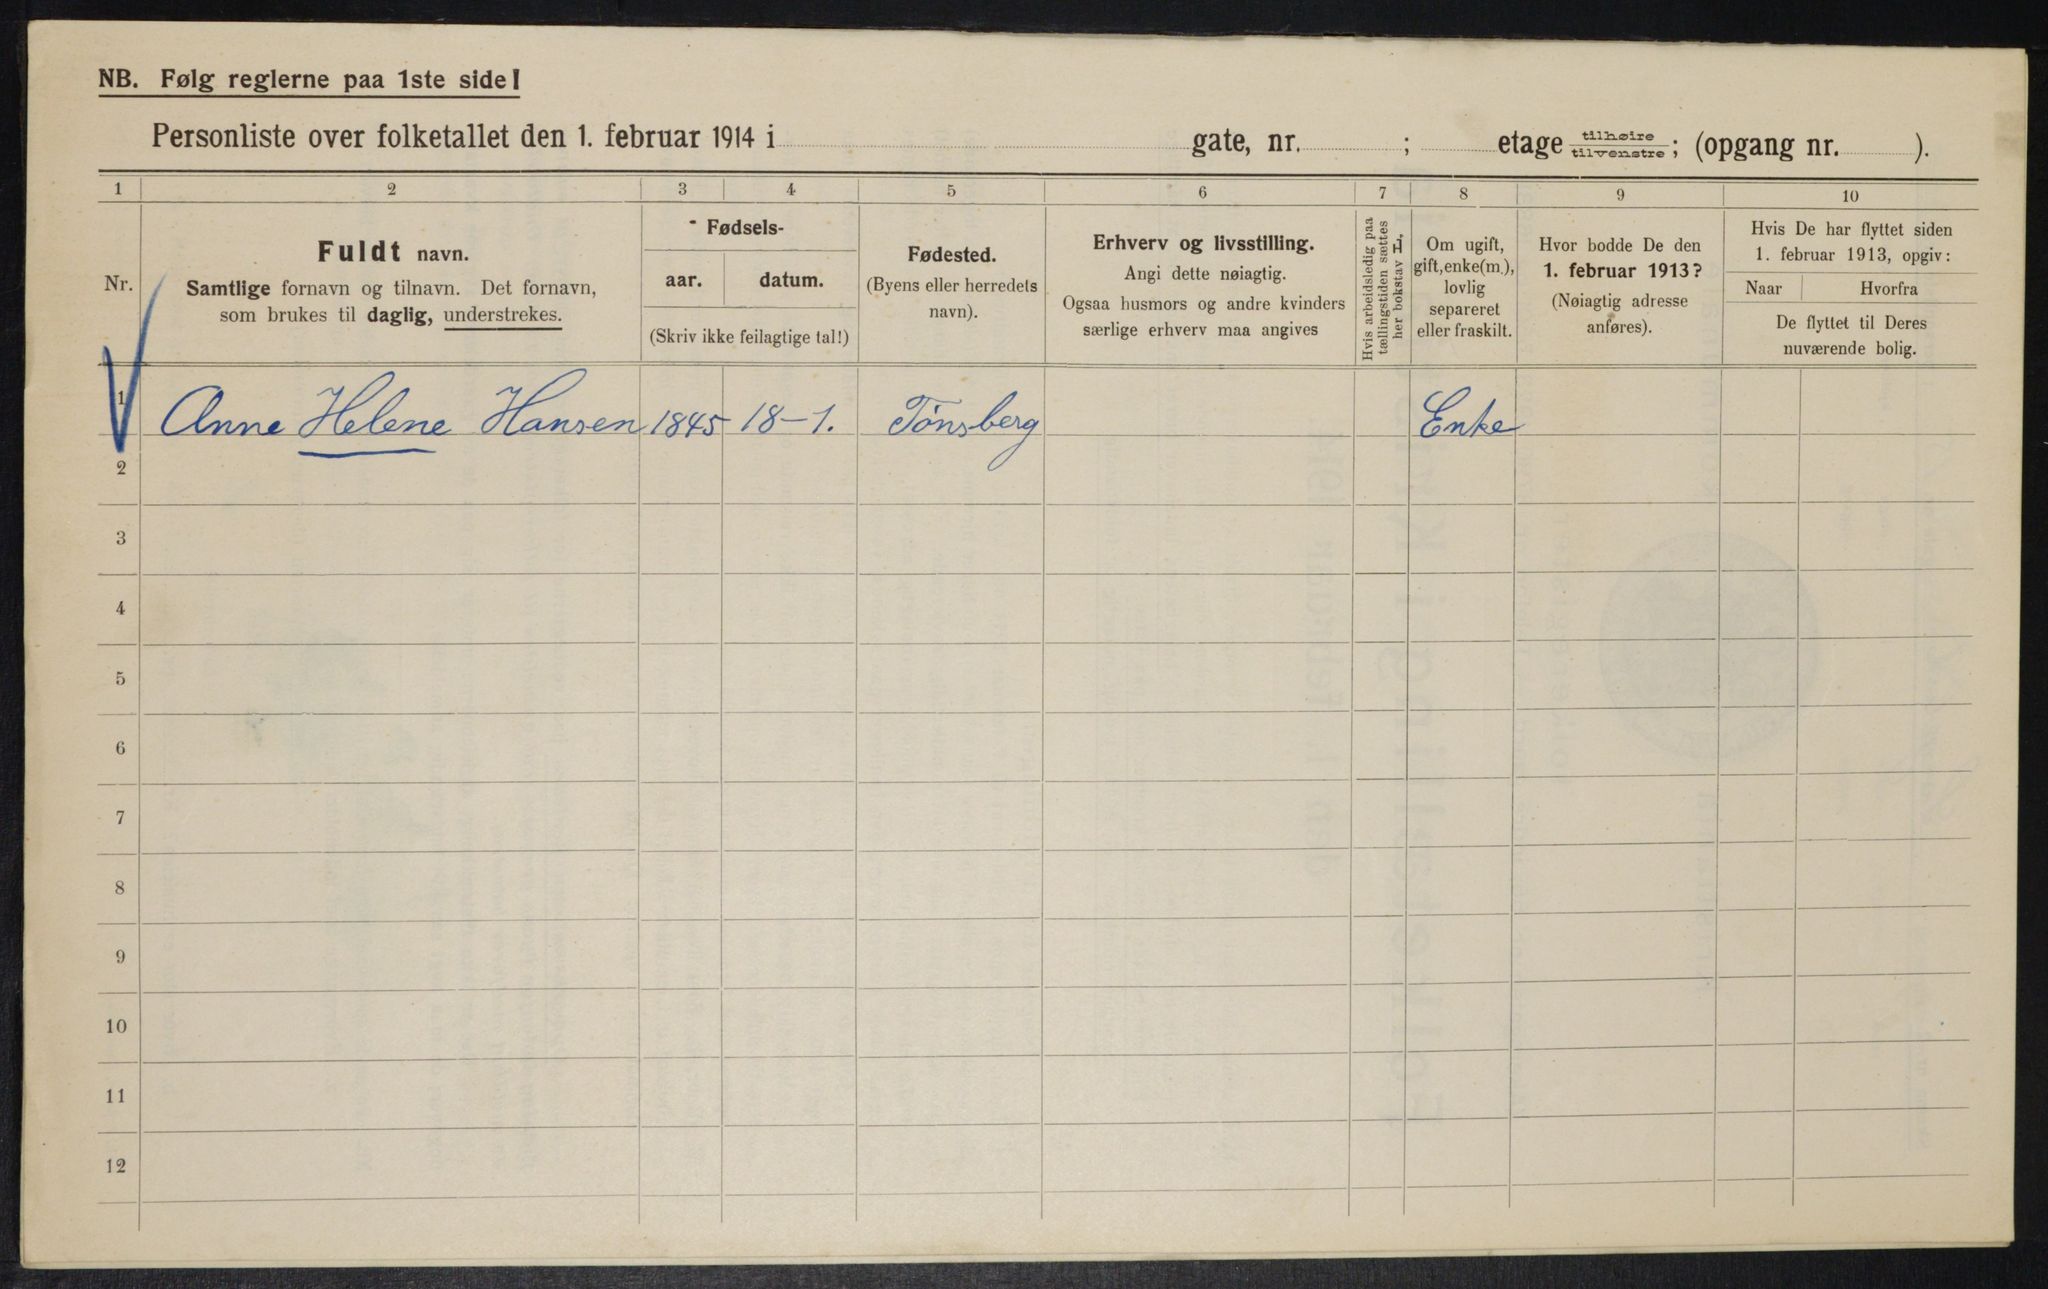 NB. Følg reglerne paa 1ste side!
Personliste over folketallet den 1. februar 1914 i gate, nr. ; etage tilhøire / tilvenstre ; (opgang nr. ).
1 2 3 4 5 6 7 8 9 10
Nr.
Fuldt navn.
Samtlige fornavn og tilnavn. Det fornavn,
som brukes til daglig, understrekes.
Fødsels-
aar. datum.
(Skriv ikke feilagtige tal!)
Fødested.
(Byens eller herredets
navn).
Erhverv og livsstilling.
Angi dette nøiagtig.
Ogsaa husmors og andre kvinders
særlige erhverv maa angives
Hvis arbeidsledig paa
tællingstiden sættes
her bokstav L.
Om ugift,
gift, enke(m.),
lovlig
separeret
eller fraskilt.
Hvor bodde De den
1. februar 1913?
(Nøiagtig adresse
anføres).
Hvis De har flyttet siden
1. februar 1913, opgiv:
Naar Hvorfra
De flyttet til Deres
nuværende bolig.
1 Anne Helene Hansen 1845 18-1. Tønsberg Enke
2
3
4
5
6
7
8
9
10
11
12